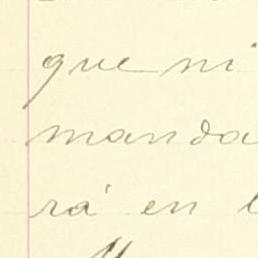 que ni
manda
rá en